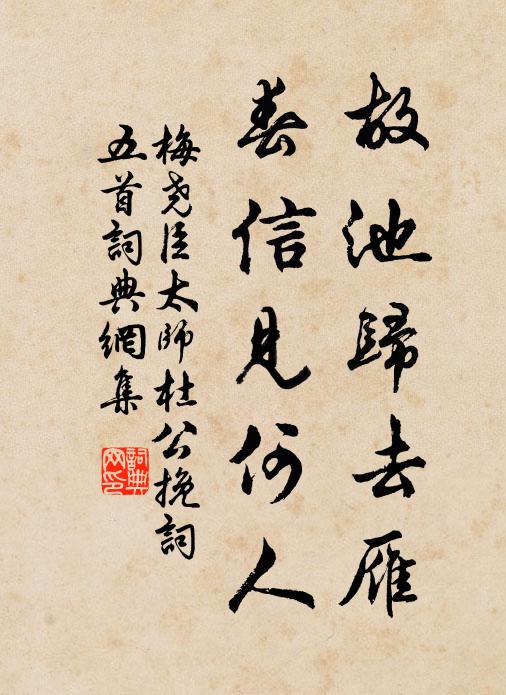 故池歸去雁
春信見何人
梅堯臣太師杜公挽詞
五首詞典網集
詞典
网印